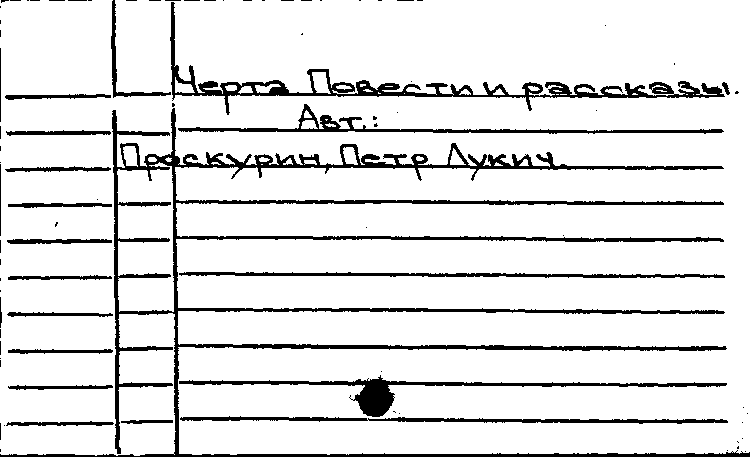 Черта Повести и рассказы.
Авт.:
Проскурин, Петр Лукич.